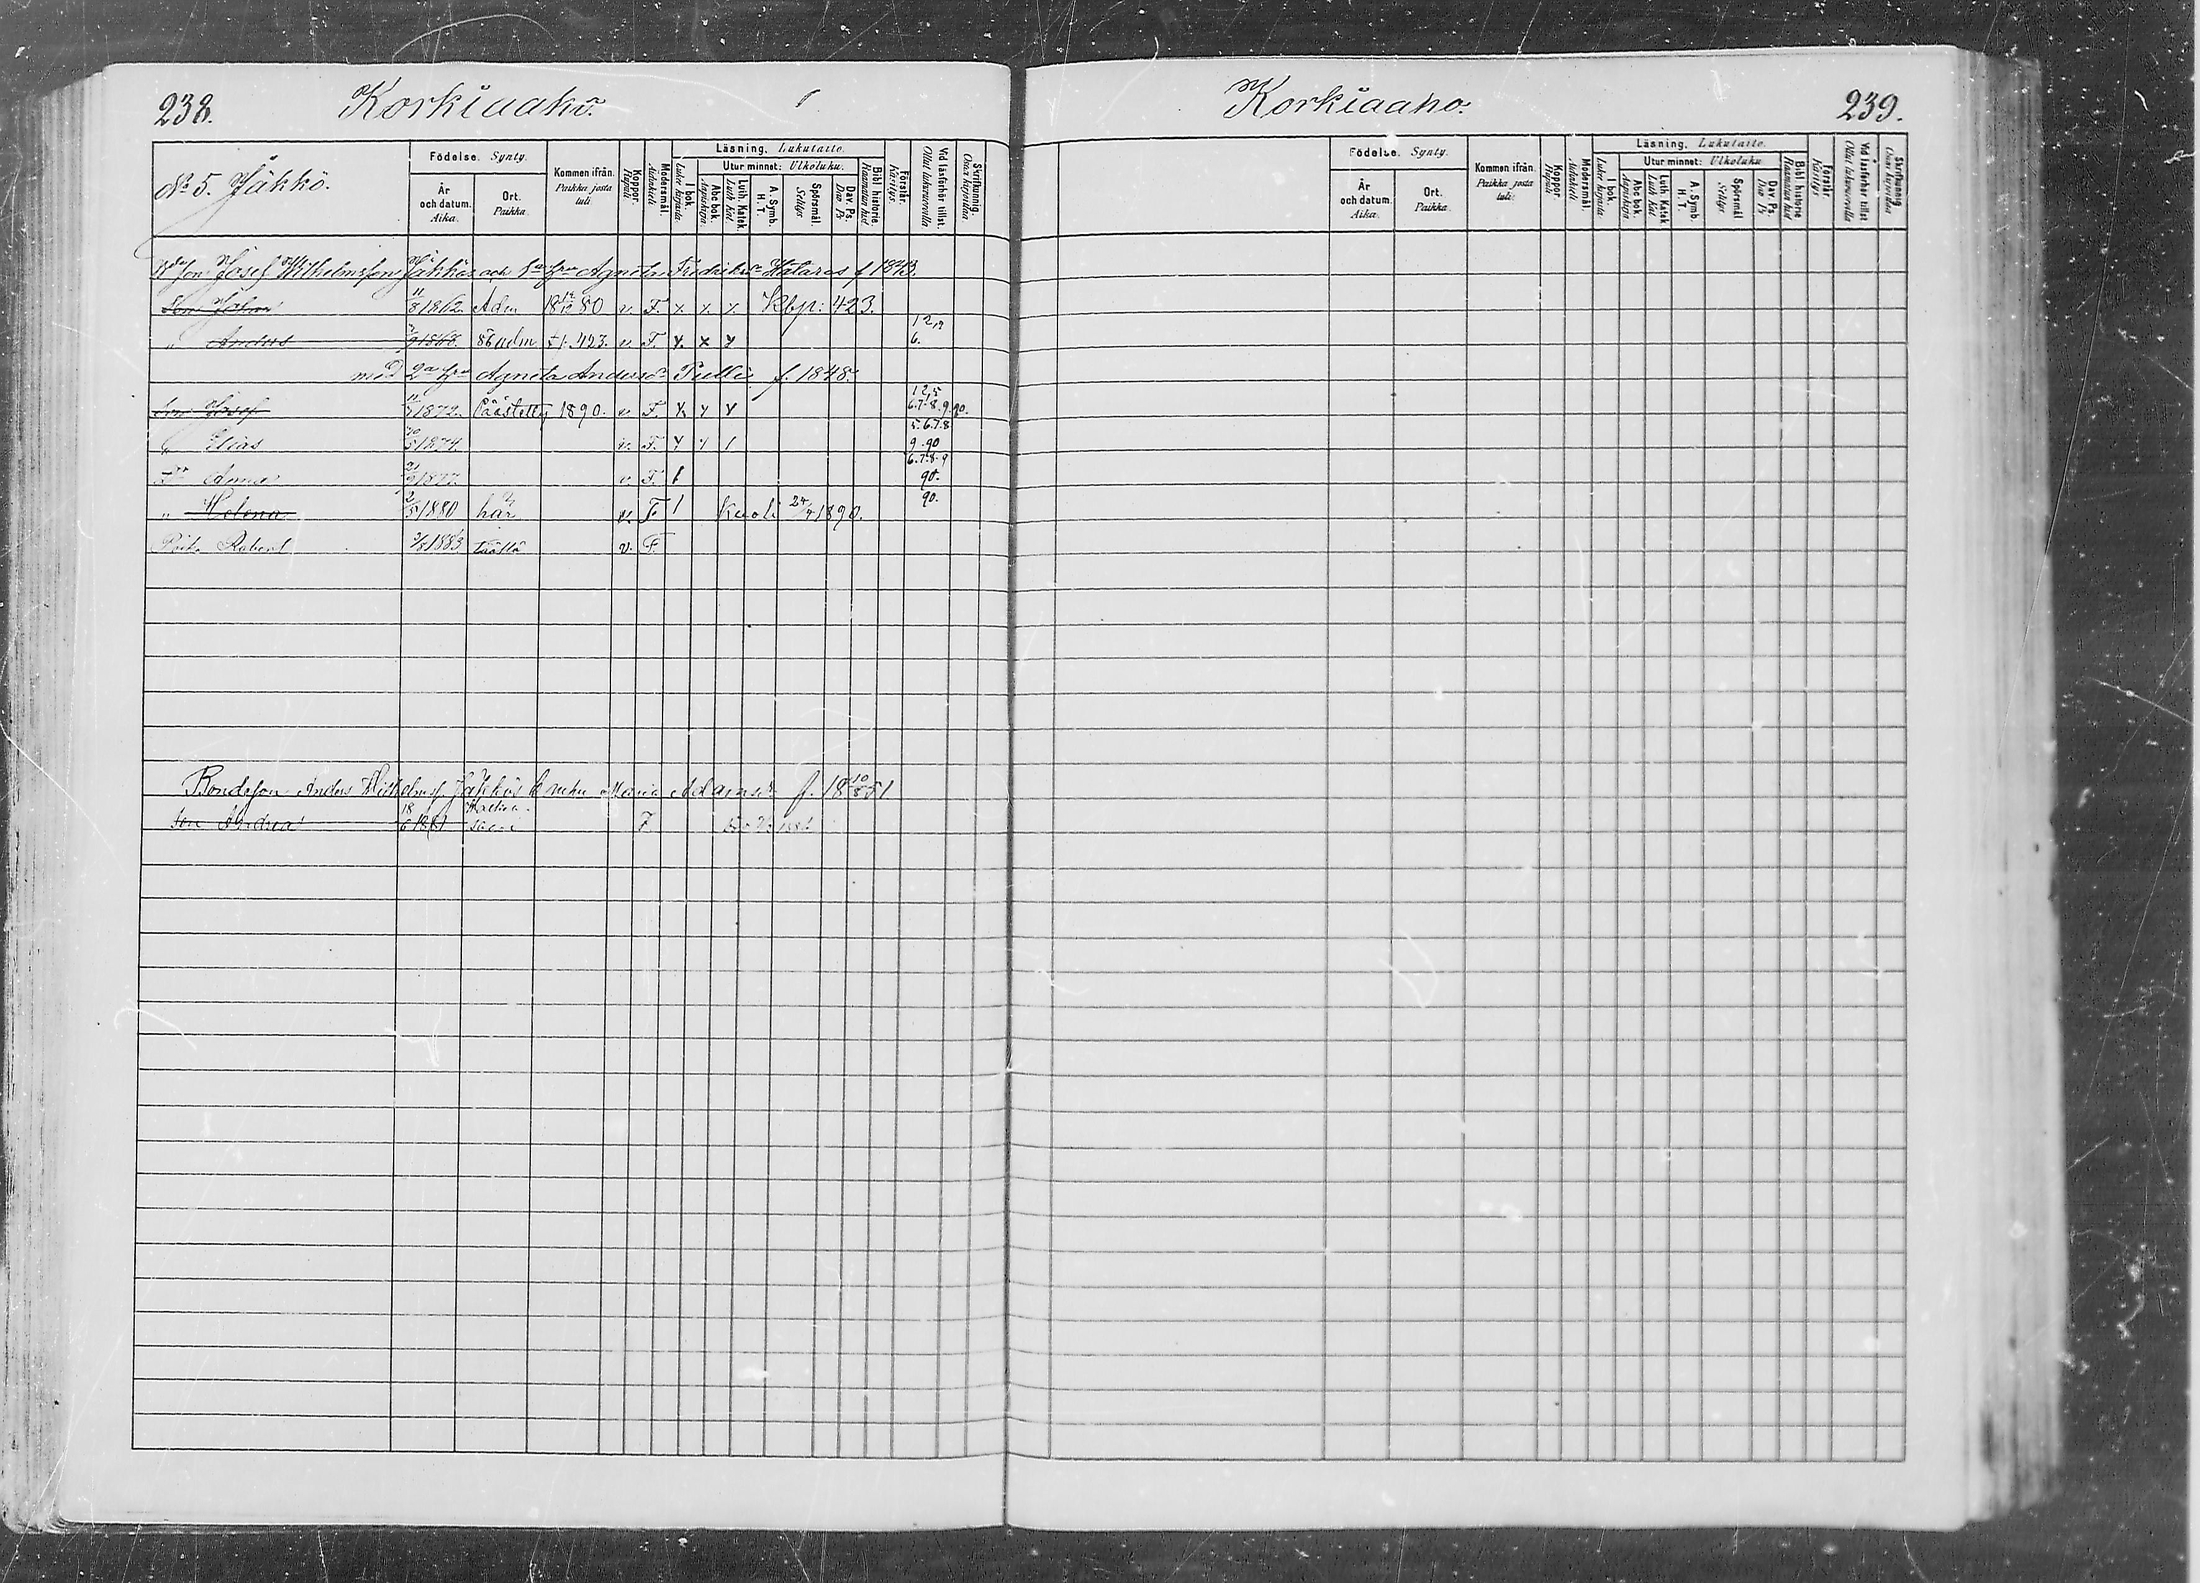 238. Korkiaaho.
No 5. Jäkkö.
Födelse. Synty.
År och datum. Aika.
Ort. Paikka.
Kommen ifrån. Paikka josta tuli
Koppor. Rupuli
Modersmål. Äidinkieli
Läsning. Lukutaito.
I bok. Lukee kirjasta.
Utur minnet: Ulkoluku.
Abc bok. Aapiskirja.
Luth. Katek. Luth Kat
A. Symb. H. T.
Spörsmål. Selitys
Dav. Ps. Dav. Ps
Bibl historie. Raamatun hist
Förstår. Käsitys.
Vid läsförhör tillst. Ollut lukuvuorolla
Skrifkunnig. Osaa kirjoittaa
Josef Wilhelmsson Jäkkö och Agneta Fredriks Hätares f 1843.
Son Johan 11/8 1862. Adm 1880 v. F. x x x Kbp: 423.
" Anders 1868. 86 adm 423. v. F. x x x 6.
med 2a Agneta Anders Pulli f. 1848.
Son Josef 1872. Päästetty 1890. v. F. x x x 6.7.8.9.90.
" Elias 1874. v. F. x x 1 5.6.7.8 9.90
Anna 1877. v. F. 1 6.7.8.9 90.
" Helena 2/5 1880 här v. F 1 Kuoli 1890. 90.
Poika Robert 1883 täällä v. F.
Bondeson Anders Wilhelmsson Jäkkös hustru Maria Adams f. 18 10/8 51
Son Andrea 18/6 1881 F
Korkiaaho. 239.
Födelse. Synty.
År och datum. Aika.
Ort. Paikka.
Kommen ifrån. Paikka josta tuli.
Koppor. Rupuli
Modersmål. Äidinkieli
Läsning. Lukutaito.
I bok. Lukee kirjasta.
Utur minnet: Ulkoluku
Abc bok. Aapiskirja
Luth. Katek. Luth Kat
A. Symb. H. T.
Spörsmål Selitys
Dav. Ps. Dav. Ps
Bibl historie Raamatun hist
Förstår. Käsitys
Vid läsförhör tillst Ollut lukuvuorolla
Skrifkunnig Osaa kirjoittaa